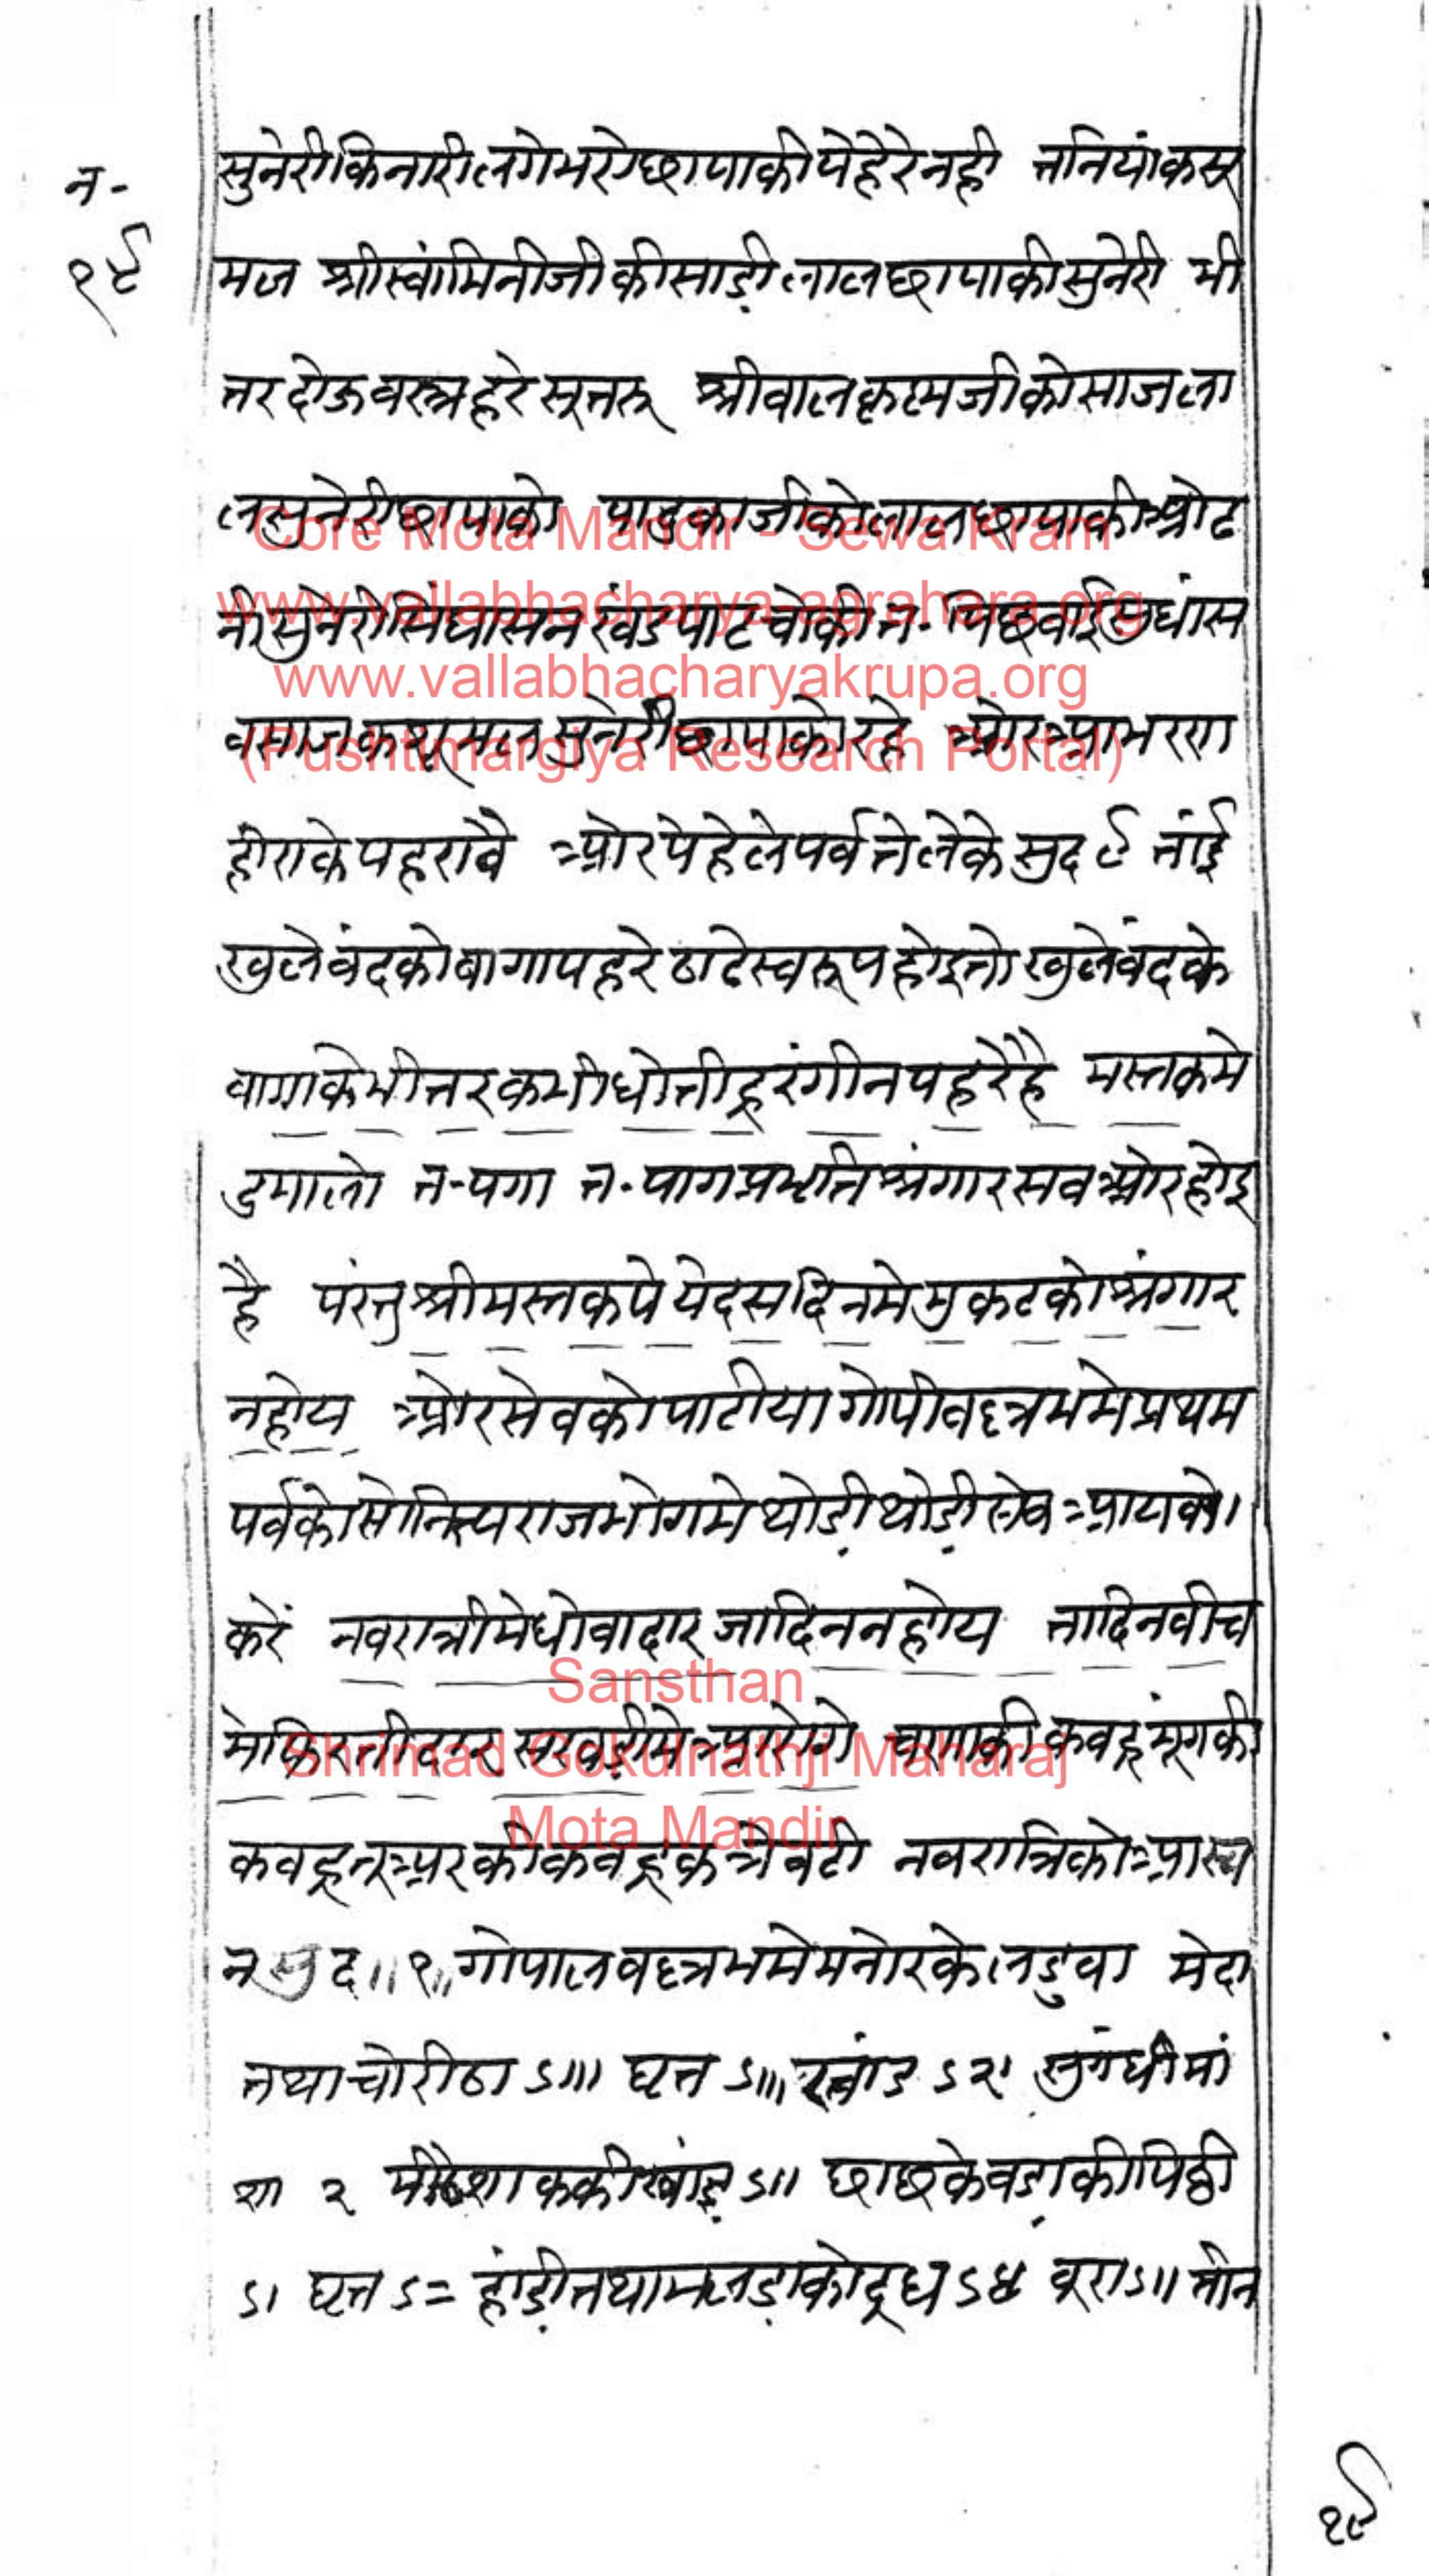 न-
१९
सुनेरी किनारी लगेभये छापाकी पेहेरे नही तनियां कसू
मल श्रीस्वांमिनीजी की साड़ी लाल छापाकी सुनेरी भी
तर दोऊ वस्त्र हरे सूतरू श्रीबालकृष्णजी को साज ला
ल सुनेरी छापाको पादुकाजी को लाल छापाकी ओढ
नी सुनेरी सिंघासन खंड पाट चोकी त. पिछवाई सुधां स
व साज कसूमल सुनेरी छापाको रहे ओर आभरण
हीराके पहरावै ओर पेहेले पर्व ते लेके सुद ९ तांई
खुले बंदको बागा पहरे ठाडे स्वरूप होइ तो खुले बंदके
बागाके भीतर कभी धोती हू रंगीन पहरे है मस्तकमे
दुमालो त-पगा त-पाग प्रभृति श्रंगार सब ओर होइ
है परंतु श्रीमस्तकपे ये दस दिनमे मुकटको श्रंगार
न होय ओर सेवको पाटीया गोपीवल्लभमे प्रथम
पर्वकोसे नित्य राजभोगमे थोडी़ थोडी़ सेव आयावो।
करें नवरात्रीमे धोवादार जादिन न होय तादिन बीच
मे छिरकी दार सखडी़मे आरोगे चणाकी कबहू मूंगकी
कबहू तूअरकी कबहू क त्रेवटी नवरात्रिको आस्व
न सुद॥१॥ गोपालवल्लभमे मनोरके लडुवा मेदा
तथा चोरीठा ऽ॥। घृत ऽ॥। खांड ऽ२। सुगंधी मां
शा २ मीठे शाककी खांड़ ऽ॥ छाछके वडा़की पिठ्ठी
ऽ। घृत ऽ= हांडी़ तथा मलडा़को दूध ऽ४ बूरा ऽ॥ तीन
१९
Core Mota Mandir - Sewa Kram
www.vallabhacharya-agrahara.org
www.vallabhacharyakrupa.org
(Pushtimargiya Research Portal)
Sansthan
Shrimad Gokulnathji Maharaj
Mota Mandir